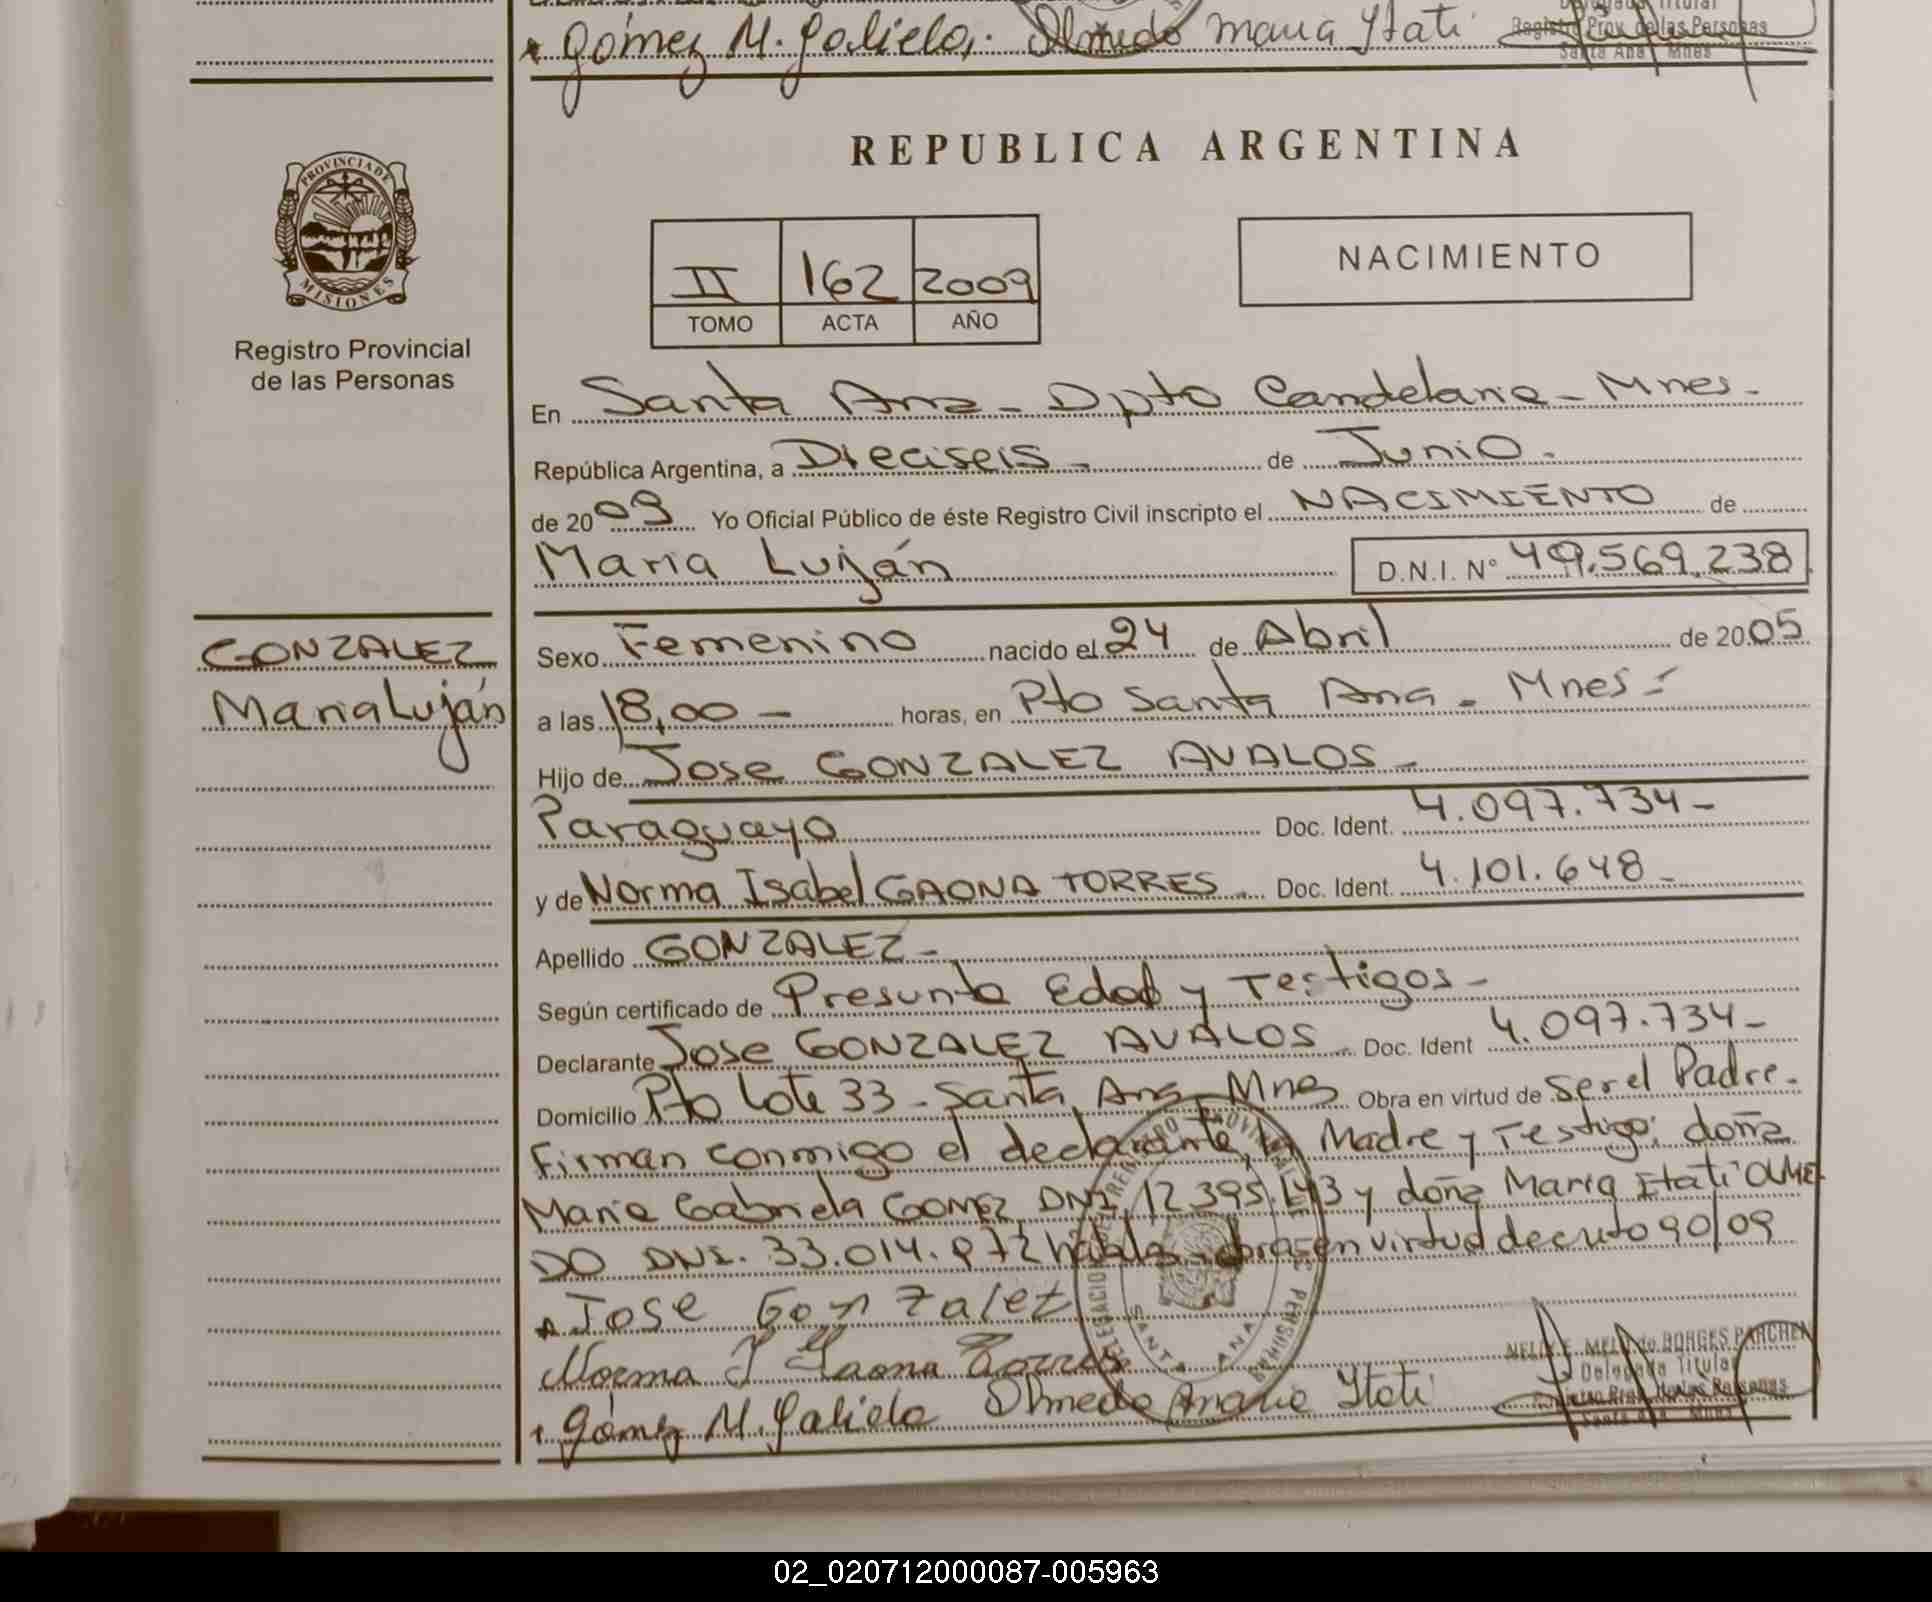 * Gómez M. Galiela. Olmedo Maria Itati
Delegada Titular
Registro Prov. de las Personas
Santa Ana Mnes
REPUBLICA ARGENTINA
PROVINCIA DE
MISIONES
Registro Provincial
de las Personas
II 162 2009
TOMO ACTA AÑO
NACIMIENTO
En Santa Ana - Dpto Candelaria - Mnes -
República Argentina, a Dieciseis - de Junio -
de 2009 Yo Oficial Público de éste Registro Civil inscripto el NACIMIENTO de
Maria Luján D.N.I. Nº 49.569.238
GONZALEZ
Maria Luján
Sexo Femenino nacido el 24 de Abril de 2005
a las 18,00 - horas, en Pto Santa Ana - Mnes -
Hijo de Jose GONZALEZ AVALOS -
Paraguayo Doc. Ident. 4.097.734 -
y de Norma Isabel GAONA TORRES - Doc. Ident. 4.101.648 -
Apellido GONZALEZ -
Según certificado de Presunta Edad y Testigos -
Declarante Jose GONZALEZ AVALOS Doc. Ident 4.097.734 -
Domicilio Pto Lote 33 - Santa Ana - Mnes Obra en virtud de ser el Padre -
Firman conmigo el declarante, la Madre y Testigo: doña
Maria Gabriela GOMEZ DNI. 12.395.143 y doña Maria Itati OLME
DO DNI. 33.014.972 hábla, obra en virtud decreto 90/09
Jose Gonzalez
Norma I Gaona Torres
Gómez M. Galiela Olmedo Maria Itati
NELI E. MELO de BORGES PARCHEN
Delegada Titular
Registro Prov. de las Personas
Santa Ana Mnes
SANTA ANA
02_020712000087-005963